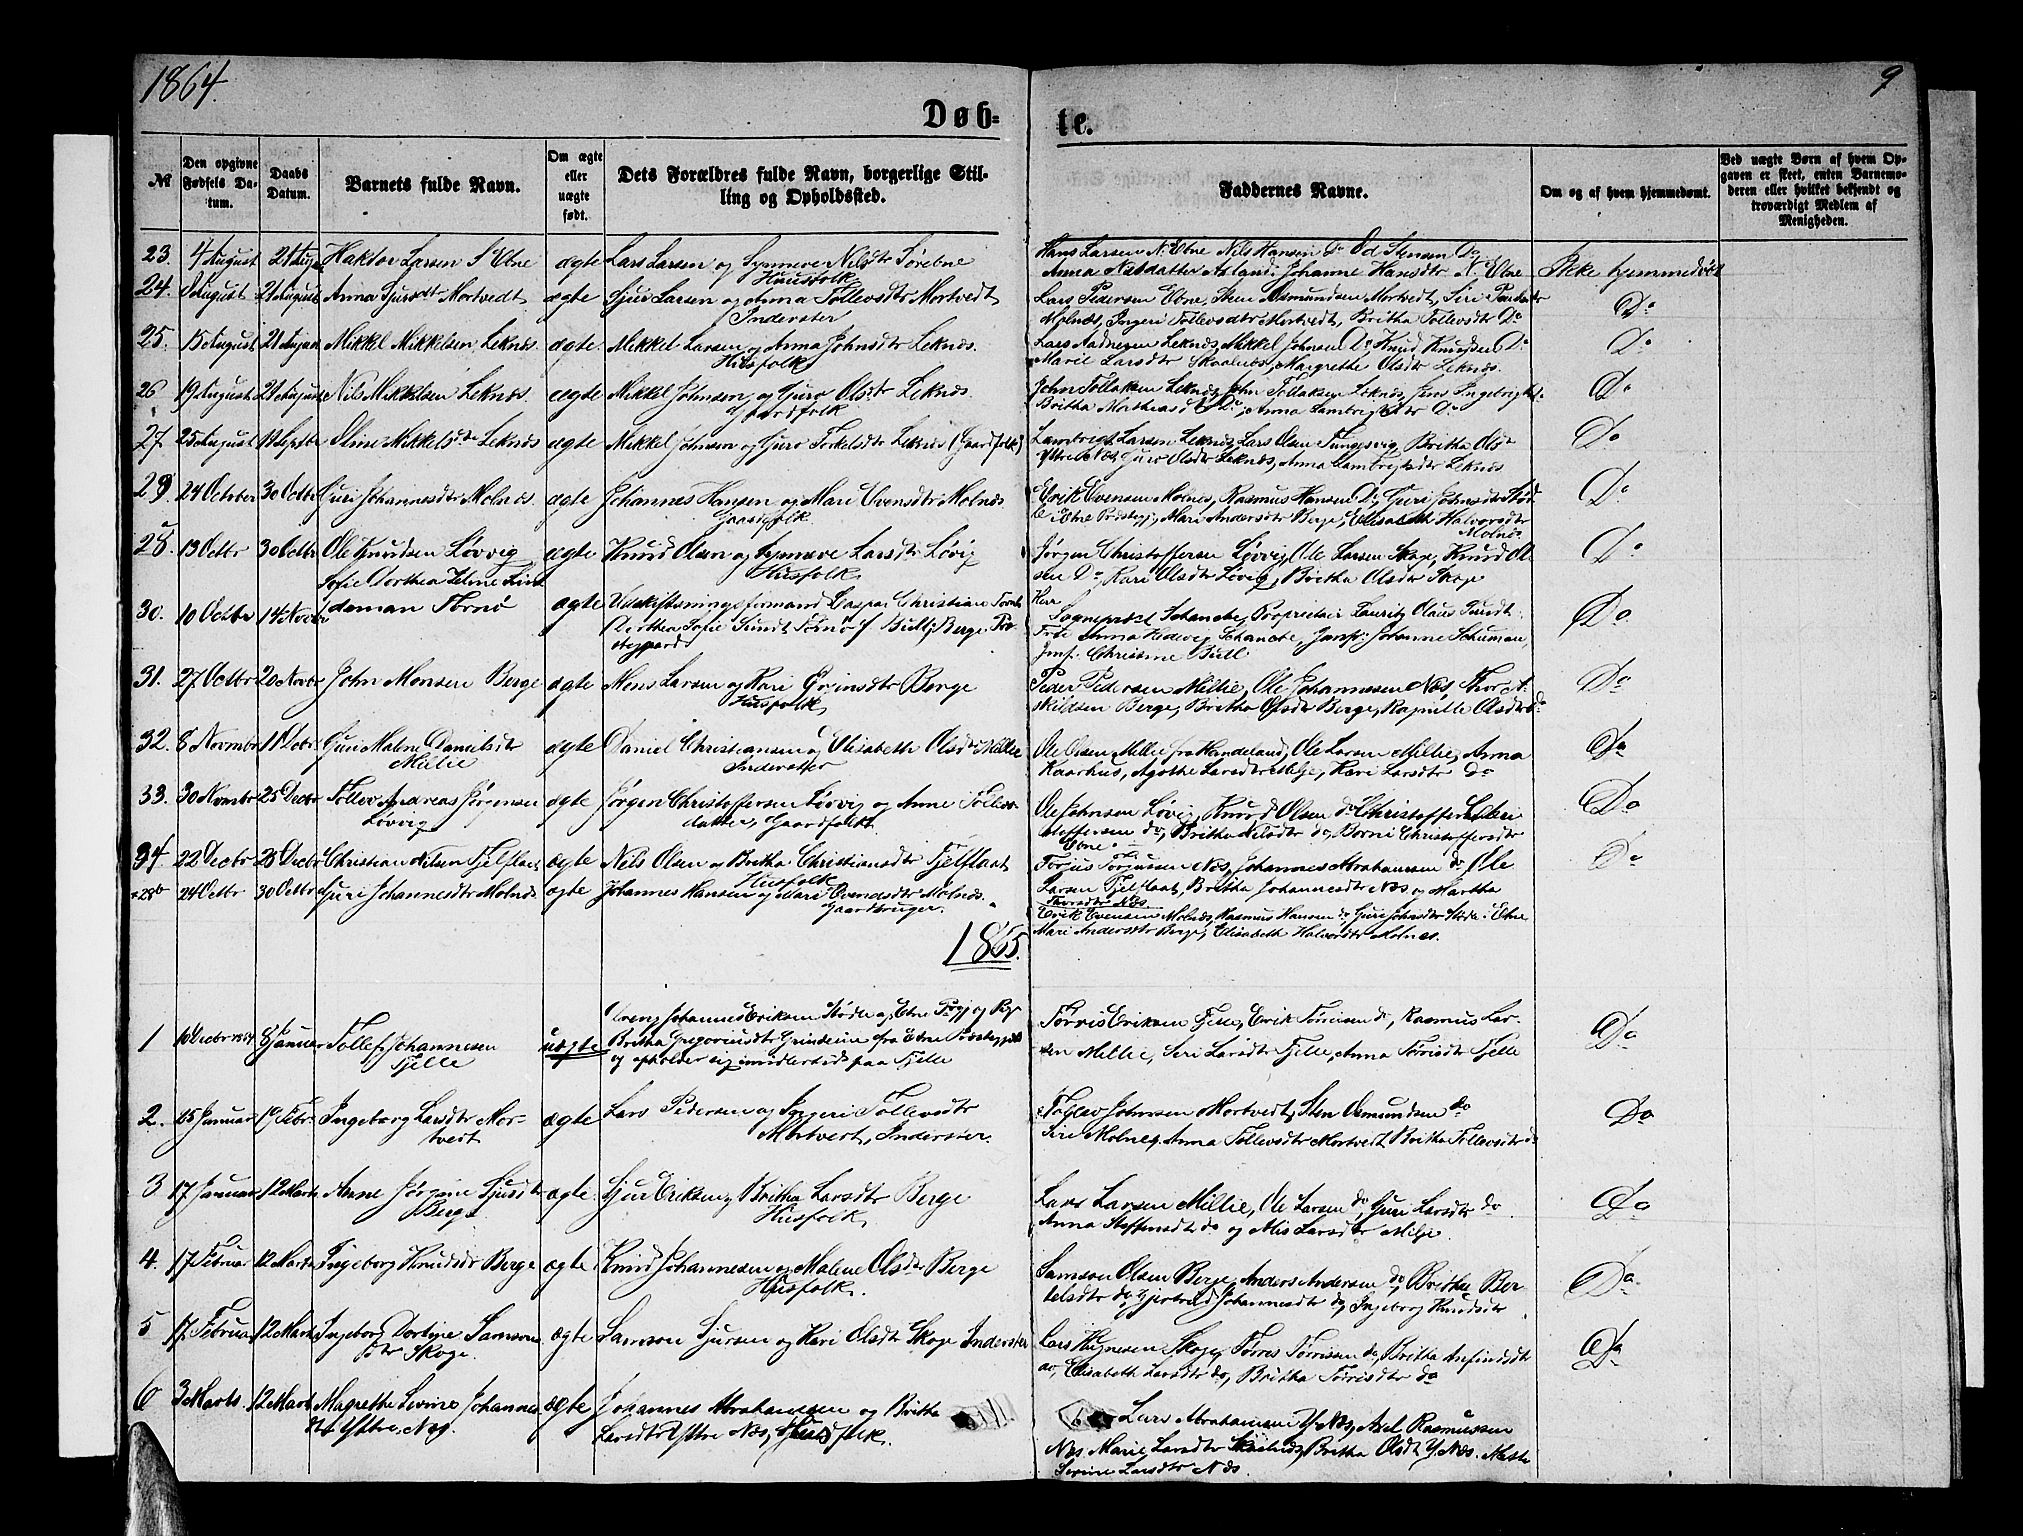 1864.
9
Døb=
te.
№
Den opgivne Fødsels Da-tum.
Daabs Datum.
Barnets fulde Navn.
Om ægte eller uægte født.
Dets Forældres fulde Navn, borgerlige Stil-
ling og Opholdssted.
Faddernes Navne.
Om og af hvem hjemmedøbt.
Ved uægte Børn af hvem Op-
gaven er skeet, enten Barnemo-
deren eller hvilket bekjendt og
troværdigt Medlem af
Menigheden.
23. 4 August 21 Aug Haktor Larsen S Etne ægte Lars Larsen og Synneve Nilsdtr Sørebne
Huusfolk
Hans Larsen N. Etne Nils Hansen Do Ed Stensen Do
Anna Nilsdatter Johanne Hansdtr N. Etne Ikke hjemmedøbt
24. August 21 August Anna Sjursdtr Mortvedt ægte Sjur Larsen og Anna Tollevsdtr Mortvedt
Inderster
Lars Pedersen Etne, Sten Osmundsen Mortvedt, Siri
Molnes, Ingeri Tollevsdtr Mortvedt, Britha Tollevsdtr Do Do
25. 15 August 21 August Mikkel Mikkelsen Leknes. ægte. Mikkel Larsen og Anna Johnsdtr Leknes.
Husfolk
Lars Leknes, Mikkel Johnsen Do, Knud Knudsen Do
Marie Larsdtr Skaalnes, Margrethe Olsdtr Leknes. Do
26 19 August 21 August Nils Mikkelsen Leknes. ægte Mikkel Johnsen og Guro Olsdtr Leknes.
Gaardfolk
John Tollaksen Leknes, John Tollaksen Leknes, Jens
Britha Do, Anna Lambregtsdtr Do Do
27. 25 August Septbr Stine Mikkelsdtr Leknes ægte Mikkel Johnsen og Guro Torkelsdtr Leknes (Gaardfolk)
Lambregt Larsen Leknes, Lars Olsen Tungesvig, Britha Olsdtr
Ytre Næs, Guro Olsdtr Leknes, Anna Lambregtsdtr Leknes Do
29. 24 October 30 Octbr Guri Johannesdtr Molnes. ægte Johannes Hansen og Mari Evensdtr Molnes
Gaardfolk
Erik Evensen Molnes, Rasmus Hansen Do, Guri Johnsdtr Stød-
le i Etne Præstegj, Mari Andersdtr Berge, Elisabeth Halvorsdtr
Molnes Do
28. 13 Octbr 30 Octbr Ole Knudsen Løvvig ægte Knud Olsen og Synneve Larsdtr Løvig
Husfolk
Jørgen Christoffersen Løvvig, Ole Larsen Skoge, Knud Ol-
sen Do, Kari Olsdtr Løvig, Britha Olsdtr Skoge Do
30. 10 Octbr 14 Novbr Sofie Dorthea
Tornø ægte Udskiftningsformand Caspar Christian
Dorthea Sofie Sundt Tornø f. Bull, Berge,
Herr
Sogneprest Schanche, Proprietair Lauritz Olaus Sundt
Anna Hedevig Schanche, Jomf. Johanne Schuman,
Jmf. Christine Bull Do
31. 27 Octbr 20 Novbr John Monsen Berge ægte Mons Larsen og Kari Berge
Husfolk
Peder Pedersen Millie, Ole Johannesen Næs, Thor A-
skildsen Berge, Britha Olsdtr Berge, Ragnille Olsdtr do Do
32. 8 Novmbr Decbr Guri Malene Danielsdtr
Millie ægte Daniel Christiansen og Elisabeth Olsdtr Millie
Inderster
Ole Olsen Millie fra Handeland, Ole Larsen Millie, Anna
Kaarhus, Agathe Larsdtr Milje, Kari Larsdtr do Do
33. 30 Novmbr 25 Decbr Tollev Andreas Jørgensen
Løvvig ægte Jørgen Christoffersen Løvvig og Anne Tollevs-
datter, Gaardfolk
Ole Johnsen Løvig, Knud Olsen do, Christoffer
stoffersen do, Britha Nilsdtr do, Christoffersdtr
Etne Do
34 22 Decbr 28 Decbr Christian Nilsen Fjelflaat ægte Nils Olsen og Britha Christiansdtr Fjelflaat
Husfolk
Torjus Torjussen Næs, Johannes Abrahamsen do, Ole
Larsen Fjelflaat, Britha Johannesdtr Næs og Martha
Næs. Do
28b 24 Octbr 30 Octbr Guri Johannesdtr Molnes ægte Johannes Hansen og Mari Evensdtr Molnes.
Gaardbruger.
Erik Evensen Molnes, Rasmus Hansen do, Guri Johnsdtr Støde i Etne
Mari Andersdtr Berge, Elisabeth Halvorsdtr Molnes.
1865.
1 Decbr 1864 8 Januar Tollef Johannesen
Fjelle uægte Johannes Eriksen Støde og
Britha Gregoriusdtr Grindeim fra Etne
og opholder sig imidlertid paa Fjelle
Tørris Eriksen Fjelle, Erik Tørrisen do, Rasmus Lar-
sen Millie, Siri Larsdtr Fjelle, Anna Tørrisdtr Fjelle Do
2. 15 Januar Febr Ingeborg Larsdtr Mor-
tvedt ægte Lars Pedersen og Ingeri Tollevsdtr
Mortvedt, Inderster.
Tollev Johnsen Mortvedt, Sten Osmundsen do
Siri Molnes, Anna Tollevsdtr Mortvedt, Britha Tollevsdtr do Do
3 17 Januar 12 Marts Anne Jørgine Sjursdtr
Berge ægte Sjur Eriksen, Britha Larsdtr Berge
Husfolk
Lars Larsen Millie, Ole Larsen do, Guri Larsdtr do
Anna Steffensdtr do og Larsdtr Milje. Do
4. 17 Februar 12 Marts Ingeborg Knudsdtr Berge ægte Knud Johannesen og Malene Olsdtr Berge
Husfolk.
Samson Olsen Berge, Anders Andersen do, Britha Ber-
telsdtr do, Gjertrud Johannesdtr do, Ingeborg Knudsdtr Do
5 17 Februar 12 Marts Ingeborg Dortine Samson
dtr Skoge. ægte Samson Sjursen og Kari Olsdtr Skoge Inderster
Lars Skoge, Tørres Tørrissen do, Britha Anfindsdtr
do, Elisabeth Larsdtr do, Britha Tørrisdtr do Do
6 3 Marts 12 Marts Magrethe Sevine Johannes
dtr Ytre Næs. ægte Johannes Abrahamsen og Britha
Larsdtr Ytre Næs, Husfolk.
6 Lars Abrahamsen Y Næs, Axel Rasmussen
Næs, Marie Larsdtr Skaalnes, Britha Olsdt Y. Næs,
Sevine Larsdtr Næs.